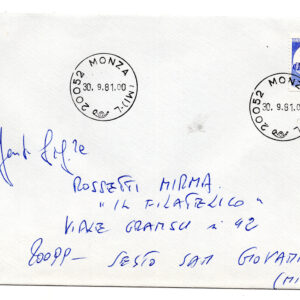 20052 MONZA (MI)-L
30.9.81.00
20052 MONZA (MI)-L
30.9.81.00
ROSSETTI MIRMA
"IL FILATELICO"
VIALE GRAMSCI n 92
20099 - SESTO SAN GIOVAN
(MI